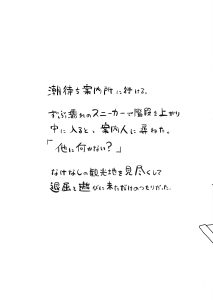 潮待ち案内所に行ける。
ずぶ濡れのスニーカーで階段を上がり
中に入ると、案内人に尋ねた。
「他に何かない？」
なけなしの観光地を見尽くして
退屈と遊びに来ただけのつもりだった。